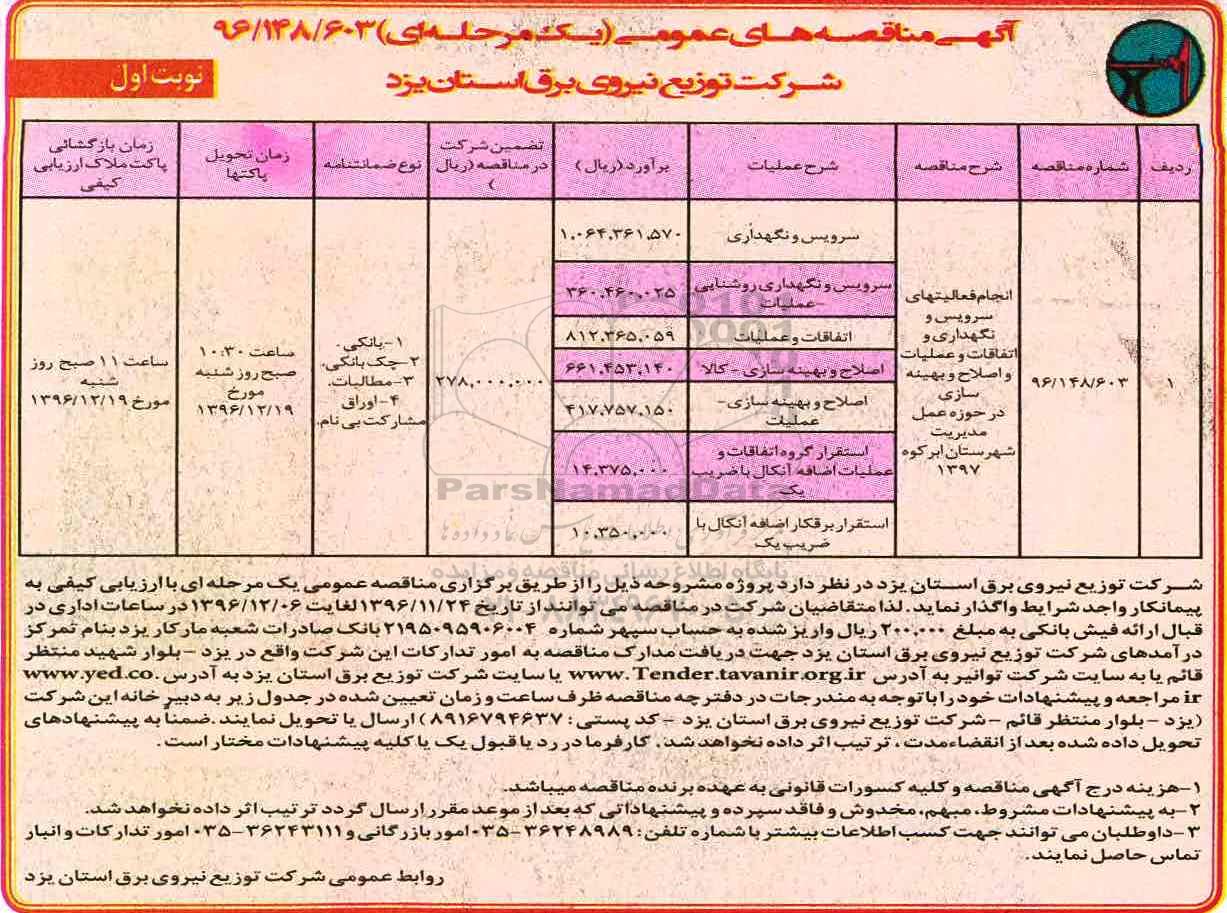 آگهی مناقصه های عمومی (یک مرحله ای) ۹۶/۱۴۸/۶۰۳
شرکت توزیع نیروی برق استان یزد
نوبت اول
ردیف
شماره مناقصه
شرح مناقصه
شرح عملیات
برآورد (ریال)
تضمین شرکت
در مناقصه (ریال
)
نوع ضمانتنامه
زمان تحویل
پاکتها
زمان بازگشائی
پاکت ملاک ارزیابی
کیفی
۱
۹۶/۱۴۸/۶۰۳
انجام فعالیتهای
سرویس و
نگهداری و
اتفاقات و عملیات
و اصلاح و بهینه
سازی
در حوزه عمل
مدیریت
شهرستان ابرکوه
۱۳۹۷
سرویس و نگهداری
۱،۰۶۴،۳۶۱،۵۷۰
سرویس و نگهداری روشنایی
-عملیات
۳۶۰،۴۶۰،۰۲۵
اتفاقات و عملیات
۸۱۲،۳۶۵،۰۵۹
اصلاح و بهینه سازی - کالا
۶۶۱،۴۵۳،۱۴۰
اصلاح و بهینه سازی -
عملیات
۴۱۷،۷۵۷،۱۵۰
استقرار گروه اتفاقات و
عملیات اضافه آنکال با ضریب
یک
۱۴،۳۷۵،۰۰۰
استقرار برقکار اضافه آنکال با
ضریب یک
۱۰،۳۵۰،۰۰۰
۲۷۸،۰۰۰،۰۰۰
۱-بانکی.
۲-چک بانکی.
۳-مطالبات.
۴-اوراق
مشارکت بی نام.
ساعت ۱۰:۳۰
صبح روز شنبه
مورخ
۱۳۹۶/۱۲/۱۹
ساعت ۱۱ صبح روز
شنبه
مورخ ۱۳۹۶/۱۲/۱۹
ParsNamadData
پایگاه اطلاع رسانی مناقصه و مزایده
شرکت توزیع نیروی برق استان یزد در نظر دارد پروژه مشروحه ذیل را از طریق برگزاری مناقصه عمومی یک مرحله ای با ارزیابی کیفی به
پیمانکار واجد شرایط واگذار نماید. لذا متقاضیان شرکت در مناقصه می توانند از تاریخ ۱۳۹۶/۱۱/۲۴ لغایت ۱۳۹۶/۱۲/۰۶ در ساعات اداری در
قبال ارائه فیش بانکی به مبلغ ۲۰۰،۰۰۰ ریال واریز شده به حساب سپهر شماره ۲۱۹۵۰۹۵۹۰۶۰۰۴ بانک صادرات شعبه مارکار یزد بنام تمرکز
درآمدهای شرکت توزیع نیروی برق استان یزد جهت دریافت مدارک مناقصه به امور تدارکات این شرکت واقع در یزد - بلوار شهید منتظر
قائم یا به سایت شرکت توانیر به آدرس www.Tender.tavanir.org.ir یا سایت شرکت توزیع برق استان یزد به آدرس www.yed.co.
ir مراجعه و پیشنهادات خود را با توجه به مندرجات در دفترچه مناقصه ظرف ساعت و زمان تعیین شده در جدول زیر به دبیرخانه این شرکت
(یزد - بلوار منتظر قائم - شرکت توزیع نیروی برق استان یزد - کد پستی: ۸۹۱۶۷۹۴۶۳۷) ارسال یا تحویل نمایند. ضمناً به پیشنهادهای
تحویل داده شده بعد از انقضاء مدت، ترتیب اثر داده نخواهد شد. کارفرما در رد یا قبول یک یا کلیه پیشنهادات مختار است.
۱-هزینه درج آگهی مناقصه و کلیه کسورات قانونی به عهده برنده مناقصه میباشد.
۲-به پیشنهادات مشروط، مبهم، مخدوش و فاقد سپرده و پیشنهاداتی که بعد از موعد مقرر ارسال گردد ترتیب اثر داده نخواهد شد.
۳-داوطلبان می توانند جهت کسب اطلاعات بیشتر با شماره تلفن: ۳۶۲۴۸۹۸۹-۰۳۵ امور بازرگانی و ۳۶۲۴۳۱۱۱-۰۳۵ امور تدارکات و انبار
تماس حاصل نمایند.
روابط عمومی شرکت توزیع نیروی برق استان یزد